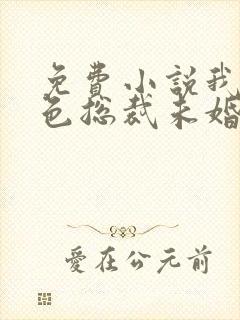 免費小說我
色總裁未婚
愛在公元前